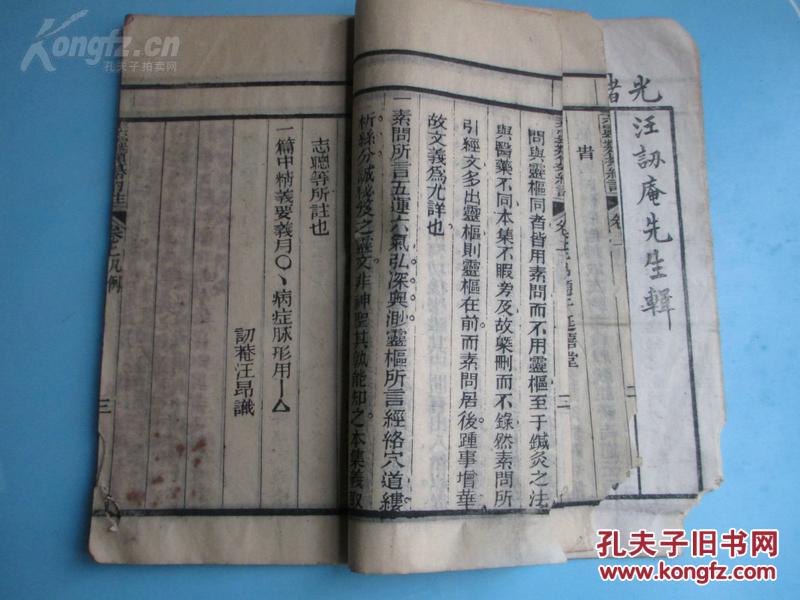 Kongfz.cn
孔夫子拍卖网
光
者
汪訒庵先生輯
問與靈樞同者皆用素問而不用靈樞至于鍼灸之法
與醫藥不同本集不暇旁及故槩刪而不錄然素問所
引經文多出靈樞則靈樞在前而素問居後踵事增華
故文義爲尤詳也
一素問所言五運六氣弘深奥渺靈樞所言經絡穴道縷
析絲分誠秘笈之靈文非神聖其孰能知之本集義取
志聰等所註也
一篇中精義要義月〇丶病症脉形用——△
訒菴汪昂識
卷之凡例
三
孔夫子旧书网
www.kongfz.com